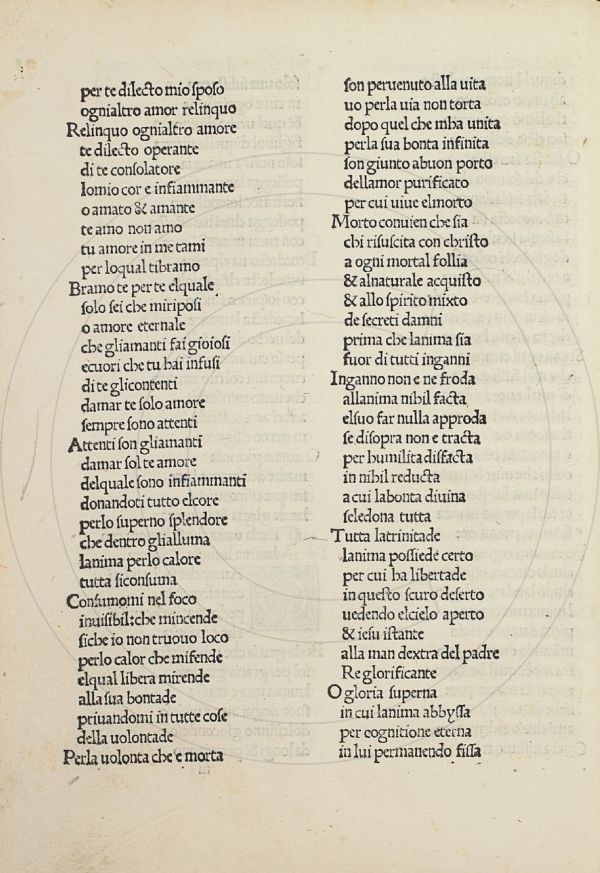 per te dilecto mio sposo
ognialtro amor relinquo
Relinquo ognialtro amore
te dilecto operante
di te consolatore
lomio cor e infiammante
o amato & amante
te amo non amo
tu amore in me tami
per loqual tibramo
Bramo te per te elquale
solo sei che miriposi
o amore eternale
che gliamanti fai gioiosi
ecuori che tu hai infusi
di te glicontenti
damar te solo amore
sempre sono attenti
Attenti son gliamanti
damar sol te amore
delquale sono infiammanti
donandoti tutto elcore
perlo superno splendore
che dentro glialluma
lanima perlo calore
tutta siconsuma
Consumomi nel foco
inuisibil:che mincende
siche io non truouo loco
perlo calor che mifende
elqual libera mirende
alla sua bontade
priuandomi in tutte cose
della uolontade
Perla uolonta che e morta
son peruenuto alla uita
uo perla uia non torta
dopo quel che mha unita
perla sua bonta infinita
son giunto abuon porto
dellamor purificato
per cui uiue elmorto
Morto conuien che sia
chi risuscita con christo
a ogni mortal follia
& alnaturale acquisto
& allo spirito mixto
de secreti damni
prima che lanima sia
fuor di tutti inganni
Inganno non e ne froda
allanima nihil facta
elsuo far nulla approda
se disopra non e tracta
per humilita disfacta
in nihil reducta
a cui labonta diuina
seledona tutta
Tutta latrinitade
lanima possiede certo
per cui ha libertade
in questo scuro deserto
uedendo elcielo aperto
& iesu istante
alla man dextra del padre
Re glorificante
O gloria superna
in cui lanima abbyssa
per cognitione eterna
in lui permanendo fissa